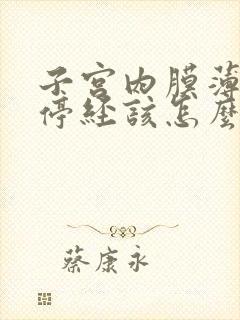 子宫内膜薄
停经该怎麼
蔡康永